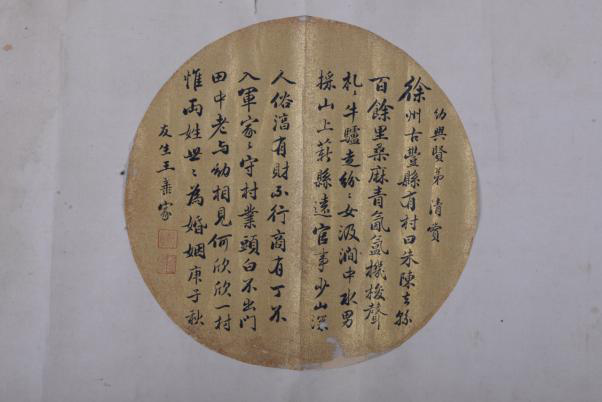 幼興賢弟清賞
徐州古豐縣有村曰朱陳去縣
百餘里桑麻青氤氳機梭聲
札〻牛驢走紛〻女汲澗中水男
採山上薪縣遠官事少山深
人俗淳有財不行商有丁不
入軍家〻守村業頭白不出門
田中老与幼相見何欣欣一村
惟兩姓世〻為婚姻庚子秋
友生王